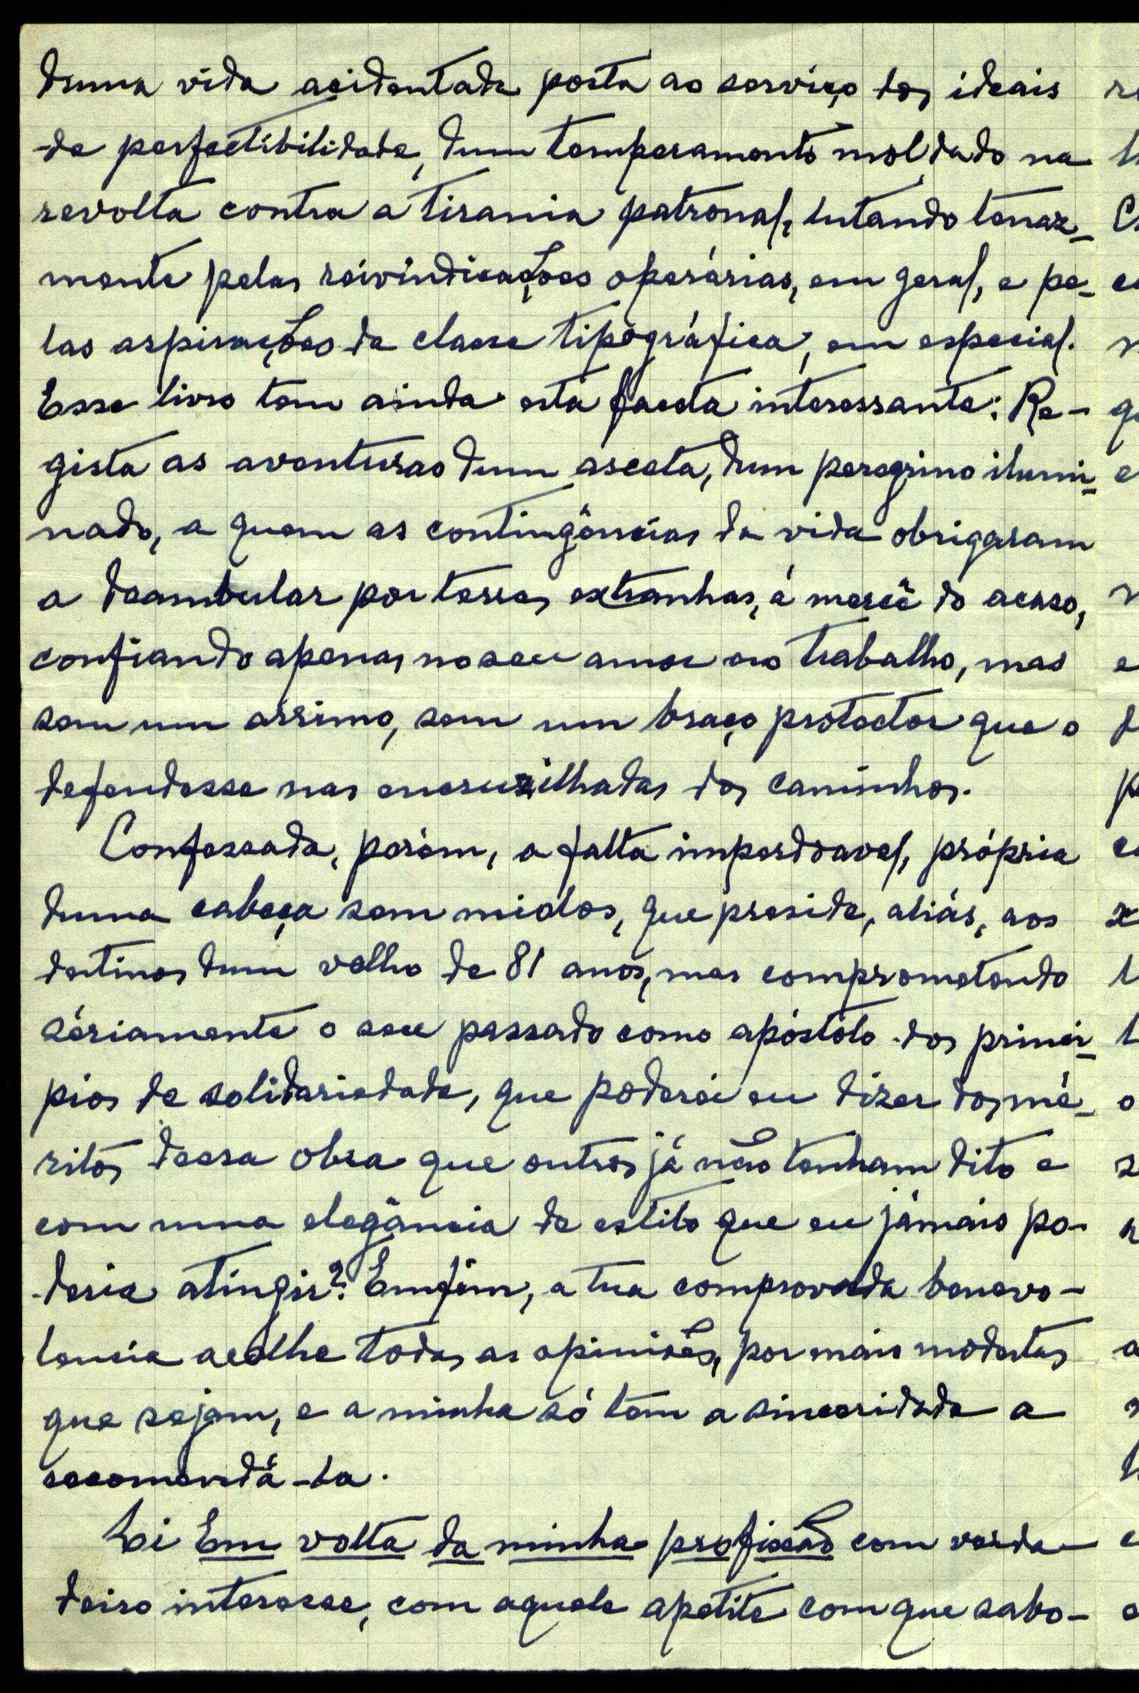 duma vida acidentada posta ao serviço dos ideais
de perfectibilidade, dum temperamento moldado na
revolta contra a tirania patronal, lutando tenaz-
mente pelas reivindicações operárias, em geral, e pe-
las aspirações da classe tipográfica, em especial.
Esse livro tem ainda esta faceta interessante: Re-
gista as aventuras dum asceta, dum peregrino ilumi-
nado, a quem as contingências da vida obrigaram
a deambular por terras extranhas, á mercê do acaso,
confiando apenas no seu amor ao trabalho, mas
sem um arrimo, sem um braço protector que o
defendesse nas encruzilhadas dos caminhos.
Confessada, porém, a falta imperdoavel, própria
duma cabeça sem miolos, que preside, aliás, aos
destinos dum velho de 81 anos, mas comprometendo
sériamente o seu passado como apóstolo dos princí-
pios de solidariedade, que poderei eu dizer dos mé-
ritos dessa obra que outros já não tenham dito e
com uma elegância de estilo que eu jámais po-
deria atingir? Emfim, a tua comprovada benevo-
lencia acolhe todas as opiniões, por mais modestas
que sejam, e a minha só tem a sinceridade a
recomendá-la.
Li Em volta da minha profissão com verda-
deiro interesse, com aquele apetite com que sabo-